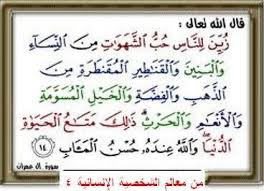 قال الله تعالى :
زُيِّنَ لِلنَّاسِ حُبُّ الشَّهَوَاتِ مِنَ النِّسَآءِ
وَالْبَنِينَ وَالْقَنَاطِيرِ الْمُقَنطَرَةِ مِنَ
الذَّهَبِ وَالْفِضَّةِ وَالْخَيْلِ الْمُسَوَّمَةِ
وَالْأَنْعَامِ وَالْحَرْثِ ذَٰلِكَ مَتَاعُ الْحَيَوٰةِ
الدُّنْيَا وَاللَّهُ عِندَهُ حُسْنُ الْمَـَٔابِ
١٤ سورة آل عمران
من معالم الشخصية الإنسانية ٤